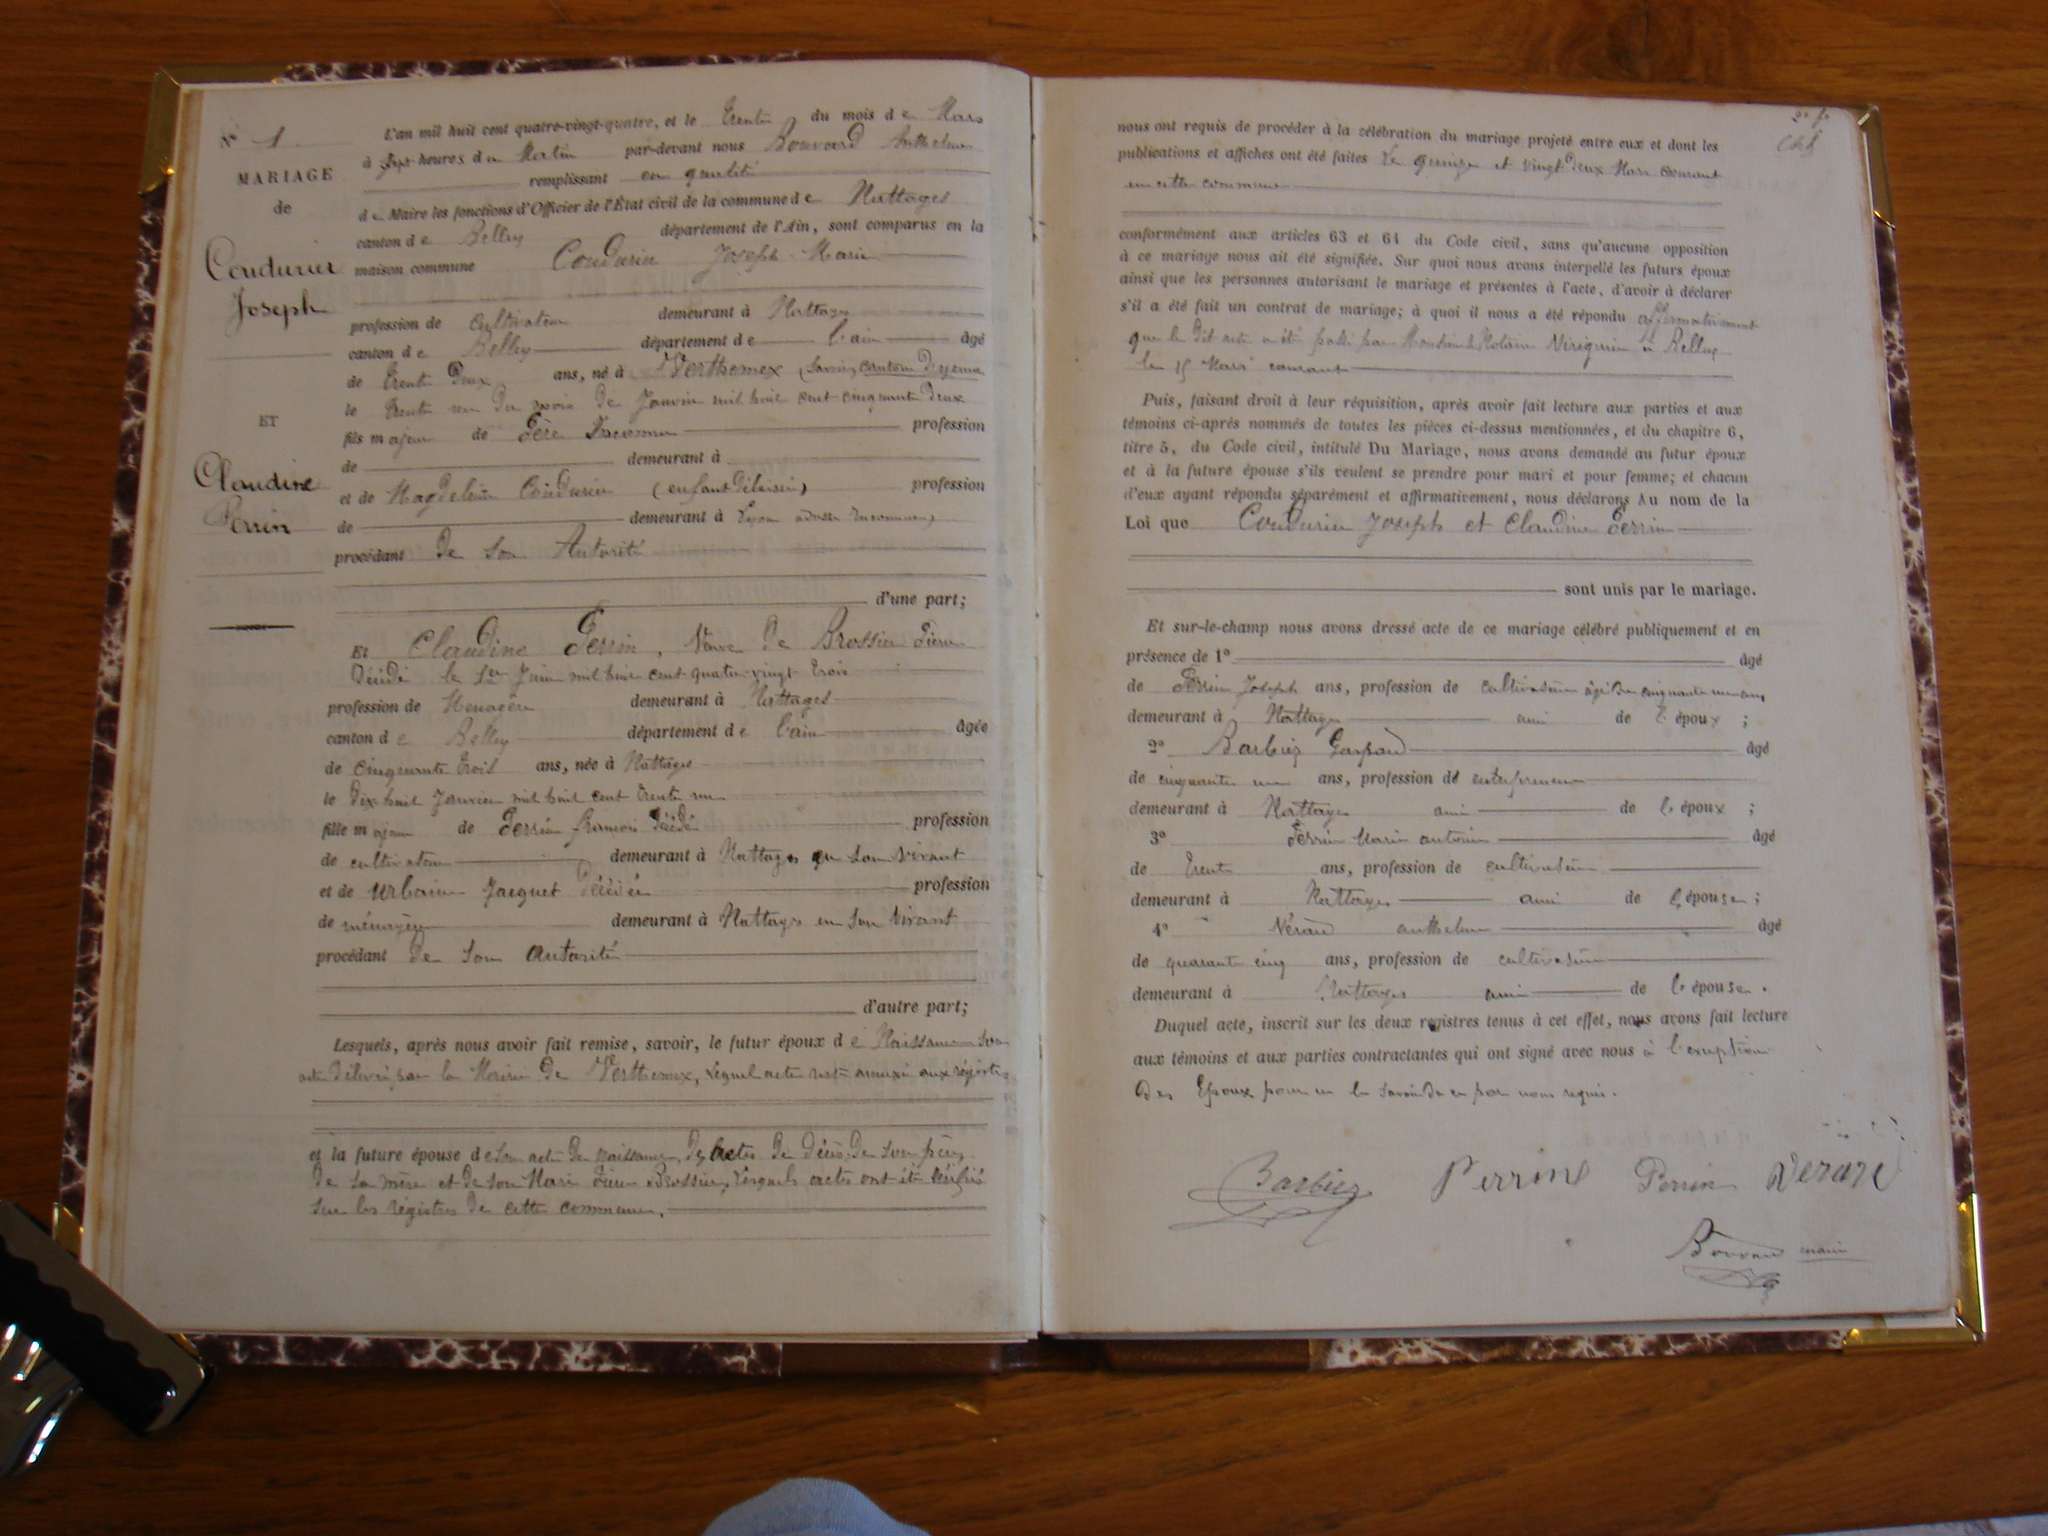 N° 1
MARIAGE
de
Coudurier
Joseph
ET
Claudine
Perrin
L'an mil huit cent quatre-vingt-quatre, et le trente du mois de Mars
à sept heures du Matin par-devant nous Bouvard Anthelme
remplissant en qualité
de Maire les fonctions d'Officier de l'État civil de la commune de Nattages
canton de Belley département de l'Ain, sont comparus en la
maison commune Coudurier Joseph Marie
profession de cultivateur demeurant à Nattages
canton de Belley département de l'ain âgé
de trente deux ans, né à Verthemex (Savoie, canton d'yenne
le trente un du mois de Janvier mil huit cent cinquante deux
fils majeur de Père Inconnu profession
de demeurant à
et de Magdeleine Coudurier (enfant délaissé) profession
de demeurant à Lyon adresse inconnue)
procédant de son Autorité
d'une part;
Et Claudine Perrin, Veuve de Brossier Pierre
Décédé le 1er Juin mil huit cent quatre vingt trois
profession de Menagère demeurant à Nattages
canton de Belley département de l'ain âgée
de cinquante trois ans, née à Nattages
le dix huit Janvier mil huit cent trente un
fille majeure de Perrin françois Décédé profession
de cultivateur demeurant à Nattages en son vivant
et de Urbaine Jacquet Décédée profession
de ménagère demeurant à Nattages en son vivant
procédant de son autorité
d'autre part;
Lesquels, après nous avoir fait remise, savoir, le futur époux de Naissance son
acte délivré par la Mairie de Verthemex, lequel acte reste annexé aux régistres
et la future épouse de son acte de naissance, des actes de décès de son père,
de sa mère et de son Mari Pierre Brossier, lesquels actes ont été vérifiés
sur les régistres de cette commune.
nous ont requis de procéder à la célébration du mariage projeté entre eux et dont les
publications et affiches ont été faites Le quinze et vingt deux Mars courant
en cette commune
conformément aux articles 63 et 64 du Code civil, sans qu'aucune opposition
à ce mariage nous ait été signifiée. Sur quoi nous avons interpellé les futurs époux
ainsi que les personnes autorisant le mariage et présentes à l'acte, d'avoir à déclarer
s'il a été fait un contrat de mariage; à quoi il nous a été répondu affirmativement
que le dit acte a été passé par Monsieur le Notaire à Belley
le 15 Mars courant
Puis, faisant droit à leur réquisition, après avoir fait lecture aux parties et aux
témoins ci-après nommés de toutes les pièces ci-dessus mentionnées, et du chapitre 6,
titre 5, du Code civil, intitulé Du Mariage, nous avons demandé au futur époux
et à la future épouse s'ils veulent se prendre pour mari et pour femme; et chacun
d'eux ayant répondu séparément et affirmativement, nous déclarons Au nom de la
Loi que Coudurier Joseph et Claudine Perrin
sont unis par le mariage.
Et sur-le-champ nous avons dressé acte de ce mariage célébré publiquement et en
présence de 1° âgé
de Perrin Joseph ans, profession de cultivateur âgé de cinquante un ans,
demeurant à Nattages ami de l'époux ;
2° Barbier Gaspard âgé
de cinquante un ans, profession de entrepreneur
demeurant à Nattages ami de l'époux ;
3° Perrin Marie antoine âgé
de trente ans, profession de cultivateur
demeurant à Nattages ami de l'épouse ;
4° Vérard anthelme âgé
de quarante cinq ans, profession de cultivateur
demeurant à Nattages ami de l'épouse.
Duquel acte, inscrit sur les deux registres tenus à cet effet, nous avons fait lecture
aux témoins et aux parties contractantes qui ont signé avec nous à l'exeption
des Epoux pour ne le savoir de ce par nous requis.
Barbier Perrin Perrin Verard
Bouvard maire